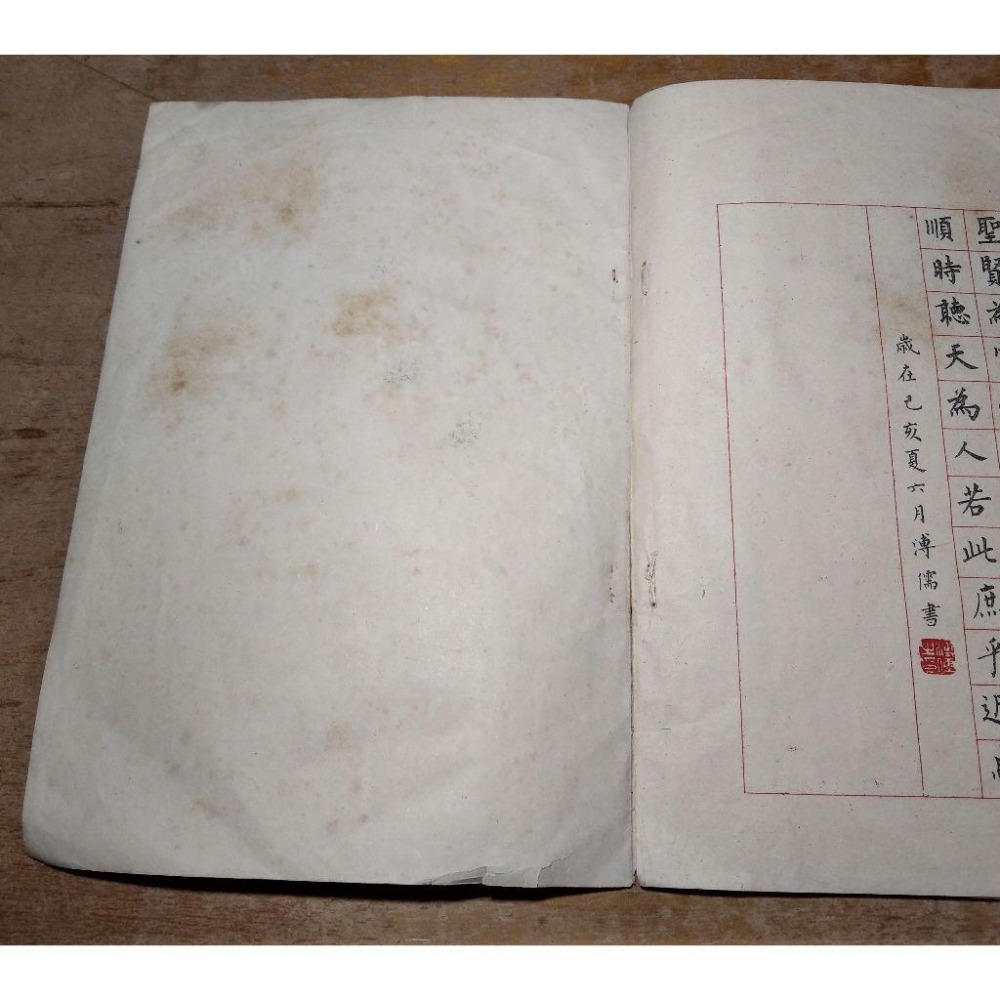 聖賢
順時聽天為人若此庶乎近
歲在己亥夏六月溥儒書